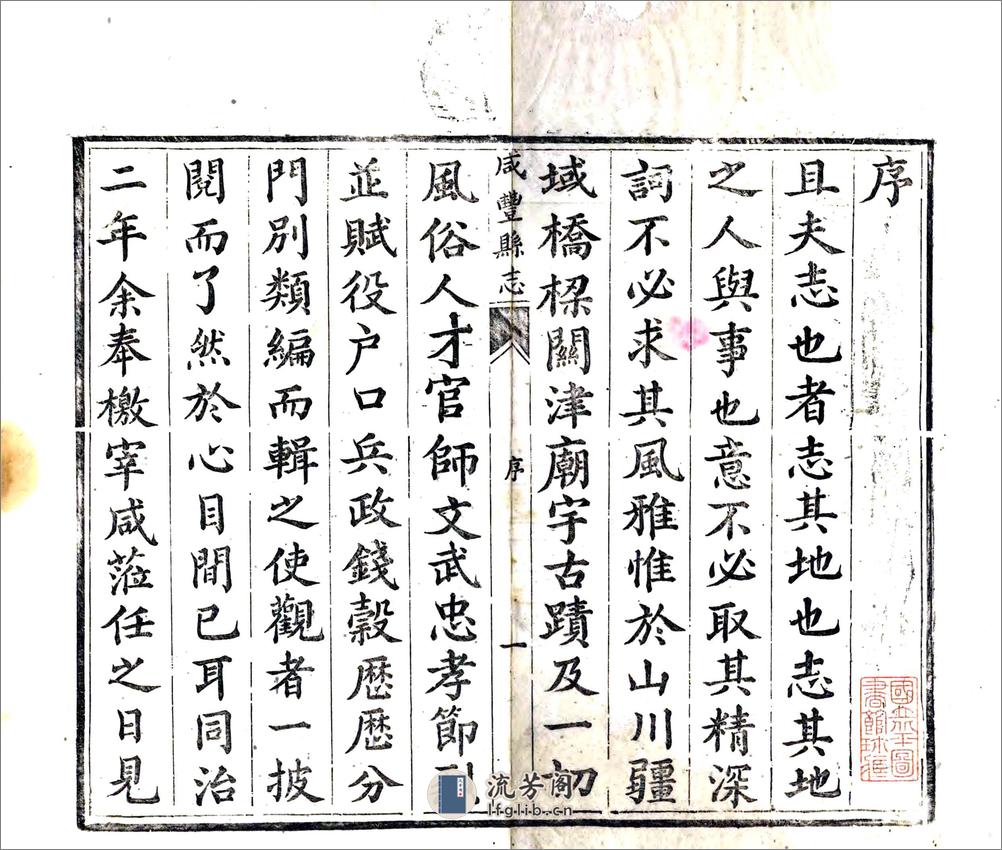 序
且夫志也者志其地也志其地
之人與事也意不必取其精深
詞不必求其風雅惟於山川疆
域橋樑關津廟宇古蹟及一切
咸豐縣志
序
一
風俗人才官師文武忠孝節
並賦役户口兵政錢穀歷歷分
門別類編而輯之使觀者一披
閱而了然於心目間已耳同治
二年余奉檄宰咸蒞任之日見
流芳阁
lfglib.cn